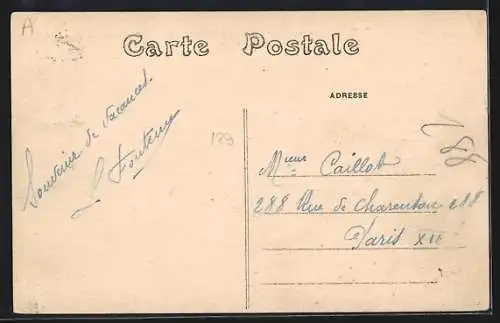 A
Carte Postale
ADRESSE
Souvenir de vacances
129
188
Caillot
288 Rue de Charenton 288
Paris XII